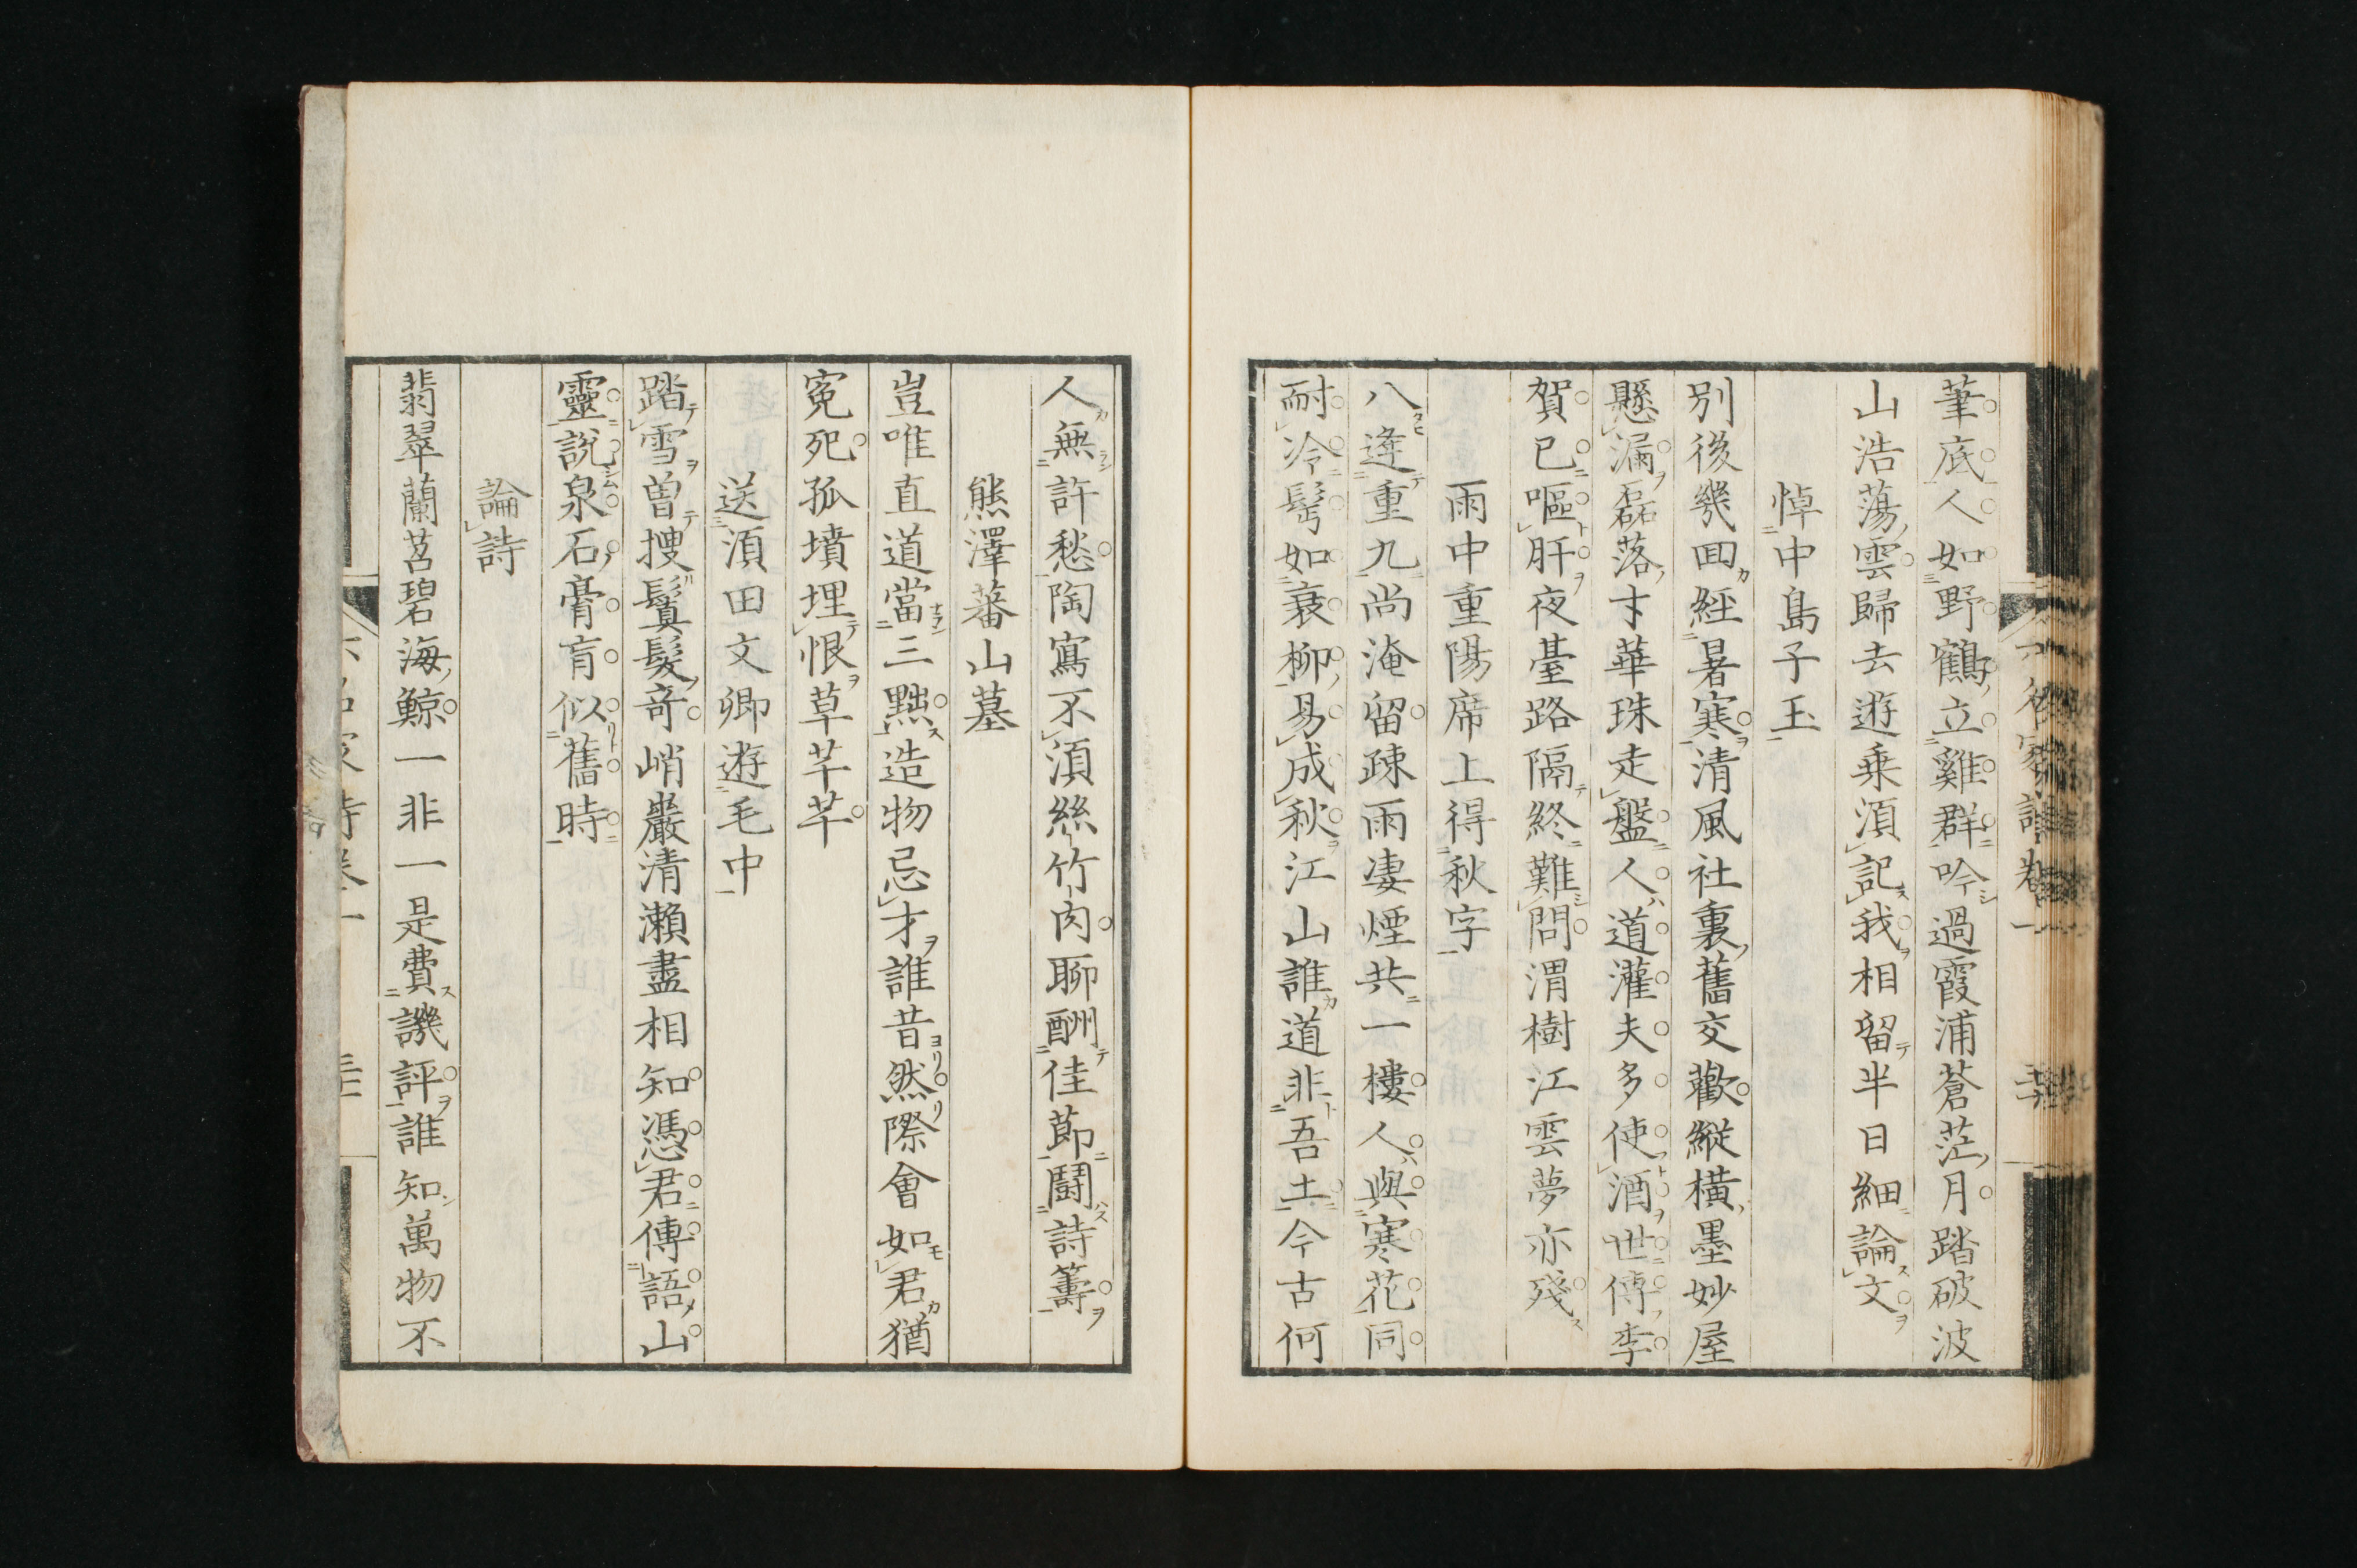 筆底人如野鶴立雞群吟過霞浦蒼茫月踏破波
山浩蕩雲歸去遊乗須記我相留半日細論文
悼中島子玉
別後幾回經暑寒清風社裏舊交歡縱橫墨妙屋
懸漏磊落才華珠走盤人道灌夫多使酒世傳李
賀已嘔肝夜臺路隔終難問渭樹江雲夢亦殘
雨中重陽席上得秋字
八逢重九尚淹留疎雨凄煙共一樓人與寒花同
耐冷髩如衰柳易成秋江山誰道非吾土今古何
人無許愁陶寫不須絲竹肉聊酬佳節鬪詩籌
熊澤蕃山墓
豈唯直道當三黜造物忌才誰昔然際會如君猶
寃死孤墳埋恨草芊芊
送須田文卿遊毛中
踏雪曽捜鬒髮奇峭巖清瀨盡相知憑君傳語山
靈說泉石膏肓似舊時
論詩
翡翠蘭苕碧海鯨一非一是費譏評誰知萬物不